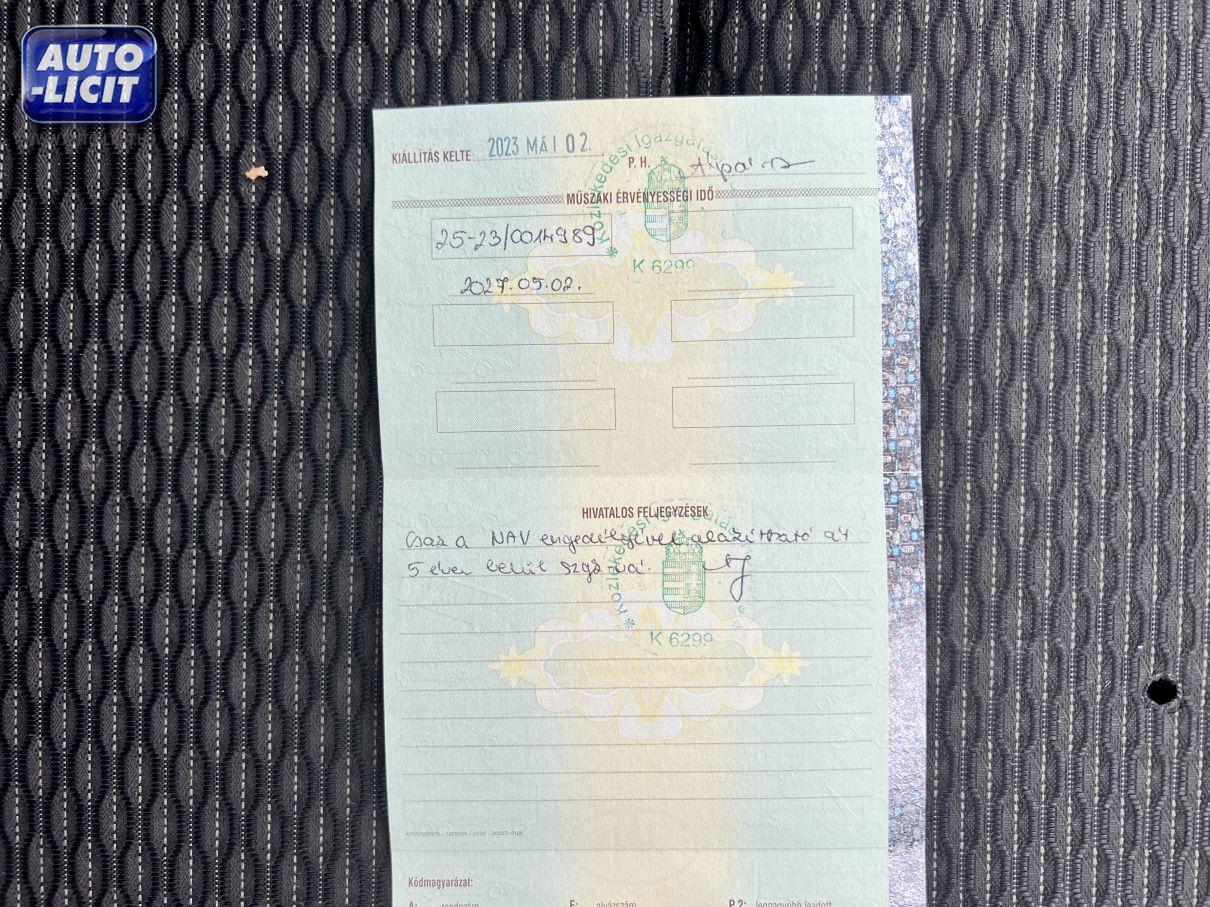 AUTO
-LICIT
KIÁLLÍTÁS KELTE 2023 MÁJ 02. P. H.
Közlekedési Igazgatás
MŰSZAKI ÉRVÉNYESSÉGI IDŐ
25-23/0014989
K 6299
2027.05.02.
HIVATALOS FELJEGYZÉSEK
Közlekedési Igazgatás
Csak a NAV engedélyével alakítható át
5 éven belül szgk-vá.
K 6299
Kódmagyarázat:
A: rendszám E: alvázszám P.2: legnagyobb leadott